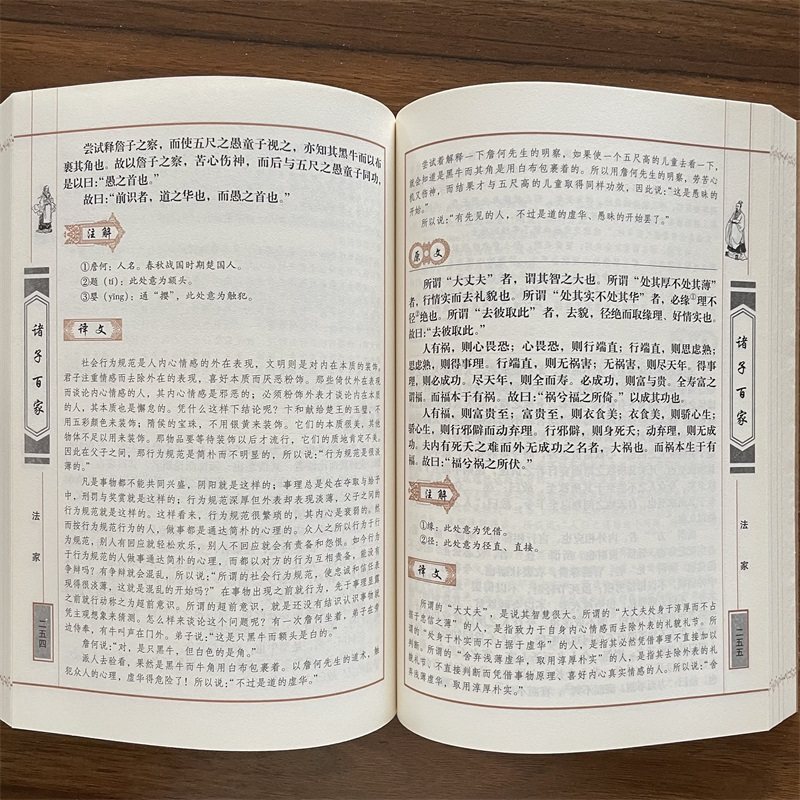 尝试释詹子之察，而使五尺之愚童子视之，亦知其黑牛而以布
裹其角也。故以詹子之察，苦心伤神，而后与五尺之愚童子同功，
是以曰：“愚之首也。”
故曰：“前识者，道之华也，而愚之首也。”
注解
①詹何：人名。春秋战国时期楚国人。
②题（tí）：此处意为额头。
③婴（yīng）：通“撄”，此处意为触犯。
译文
社会行为规范是人内心情感的外在表现，文明则是对内在本质的装饰。
君子注重情感而去除外在的表现，喜好本质而厌恶粉饰。那些倚仗外在表现
而谈论内心情感的人，其内心情感是邪恶的；必须粉饰外表才谈论内在本质
的人，其本质也是懈怠的。凭什么这样下结论呢？卞和献给楚王的玉璧，不
用五彩颜色来装饰；隋侯的宝珠，不用银黄来装饰。它们的本质很美，其他
物体不足以用来装饰。那物品要等待装饰以后才流行，它们的质地肯定不美。
因此在父子之间，那行为规范是简朴而不明显的，所以说：“行为规范是很淡
薄的。”
凡是事物都不能共同兴盛，阴阳就是这样的；事理总是处在夺取与给予
中，刑罚与奖赏就是这样的；行为规范深厚但外表却表现淡薄，父子之间的
行为规范就是这样的。这样看来，行为规范很繁琐的，其内心是衰弱的。然
而按行为规范行为的人，做事都是通达简朴的心理的。众人之所以行为于行
为规范，别人有回应就轻松欢乐，别人不回应就会有责备和怨恨。如今行为
于行为规范的人做事通达简朴的心理，而都以对方的行为互相责备，能没有
争辩吗？有争辩就会混乱，所以说：“所谓的社会行为规范，使忠诚和信任表
现得很淡薄，这就是混乱的开始吗？”在事物出现之前就行为，先于事理显露
之前就行动称之为超前意识。所谓的超前意识，就是还没有结识认识事物就
凭主观想象来猜测。怎么样来谈论这个问题呢？有一次詹何坐着，弟子在旁
边侍奉，有牛叫声在门外。弟子说：“这是只黑牛而额头是白的。”
詹何说：“对，是只黑牛，但白色的是角。”
派人去验看，果然是黑牛而牛角用白布包裹着。以詹何先生的道术，触
犯众人的心理，虚华得危险了！所以说：“不过是道的虚华。”
诸子百家
法家
二五四
尝试着解释一下詹何先生的明察，如果使一个五尺高的儿童去看一下，
就会知道是黑牛而其角是用白布包裹着的。所以用詹何先生的明察，劳苦心
机又伤神，而结果才与五尺高的儿童取得同样功效，因此说：“这是愚昧的开
始。”
所以说：“有先见的人，不过是道的虚华、愚昧的开始罢了。”
原文
所谓“大丈夫”者，谓其智之大也。所谓“处其厚不处其薄”
者，行情实而去礼貌也。所谓“处其实不处其华”者，必缘①理不
径②绝也。所谓“去彼取此”者，去貌，径绝而取缘理、好情实也。
故曰：“去彼取此。”
人有祸，则心畏恐；心畏恐，则行端直；行端直，则思虑熟；
思虑熟，则得事理。行端直，则无祸害；无祸害，则尽天年。得事
理，则必成功。尽天年，则全而寿。必成功，则富与贵。全寿富之
谓福。而福本于有祸。故曰：“祸兮福之所倚。”以成其功也。
人有福，则富贵至；富贵至，则衣食美；衣食美，则骄心生；
骄心生，则行邪僻而动弃理。行邪僻，则身死夭；动弃理，则无成
功。夫内有死夭之难而外无成功之名者，大祸也。而祸本生于有
福。故曰：“福兮祸之所伏。”
注解
①缘：此处意为凭借。
②径：此处意为径直、直接。
译文
所谓的“大丈夫”，是说其智慧很大。所谓的“大丈夫处身于淳厚而不占
据于忠信之薄”的人，是指致力于自身内心情感而去除外表的礼貌礼节。所
谓的“处身于朴实而不占据于虚华”的人，是指其必然凭借事理不直接加以
判断。所谓的“舍弃浅薄虚华，取用淳厚朴实”的人，是指其去除外表的礼
貌礼节、不直接判断而凭借事物原理、喜好内心真实情感的人。所以说：“舍
弃浅薄虚华，取用淳厚朴实。”
诸子百家
法家
二五五